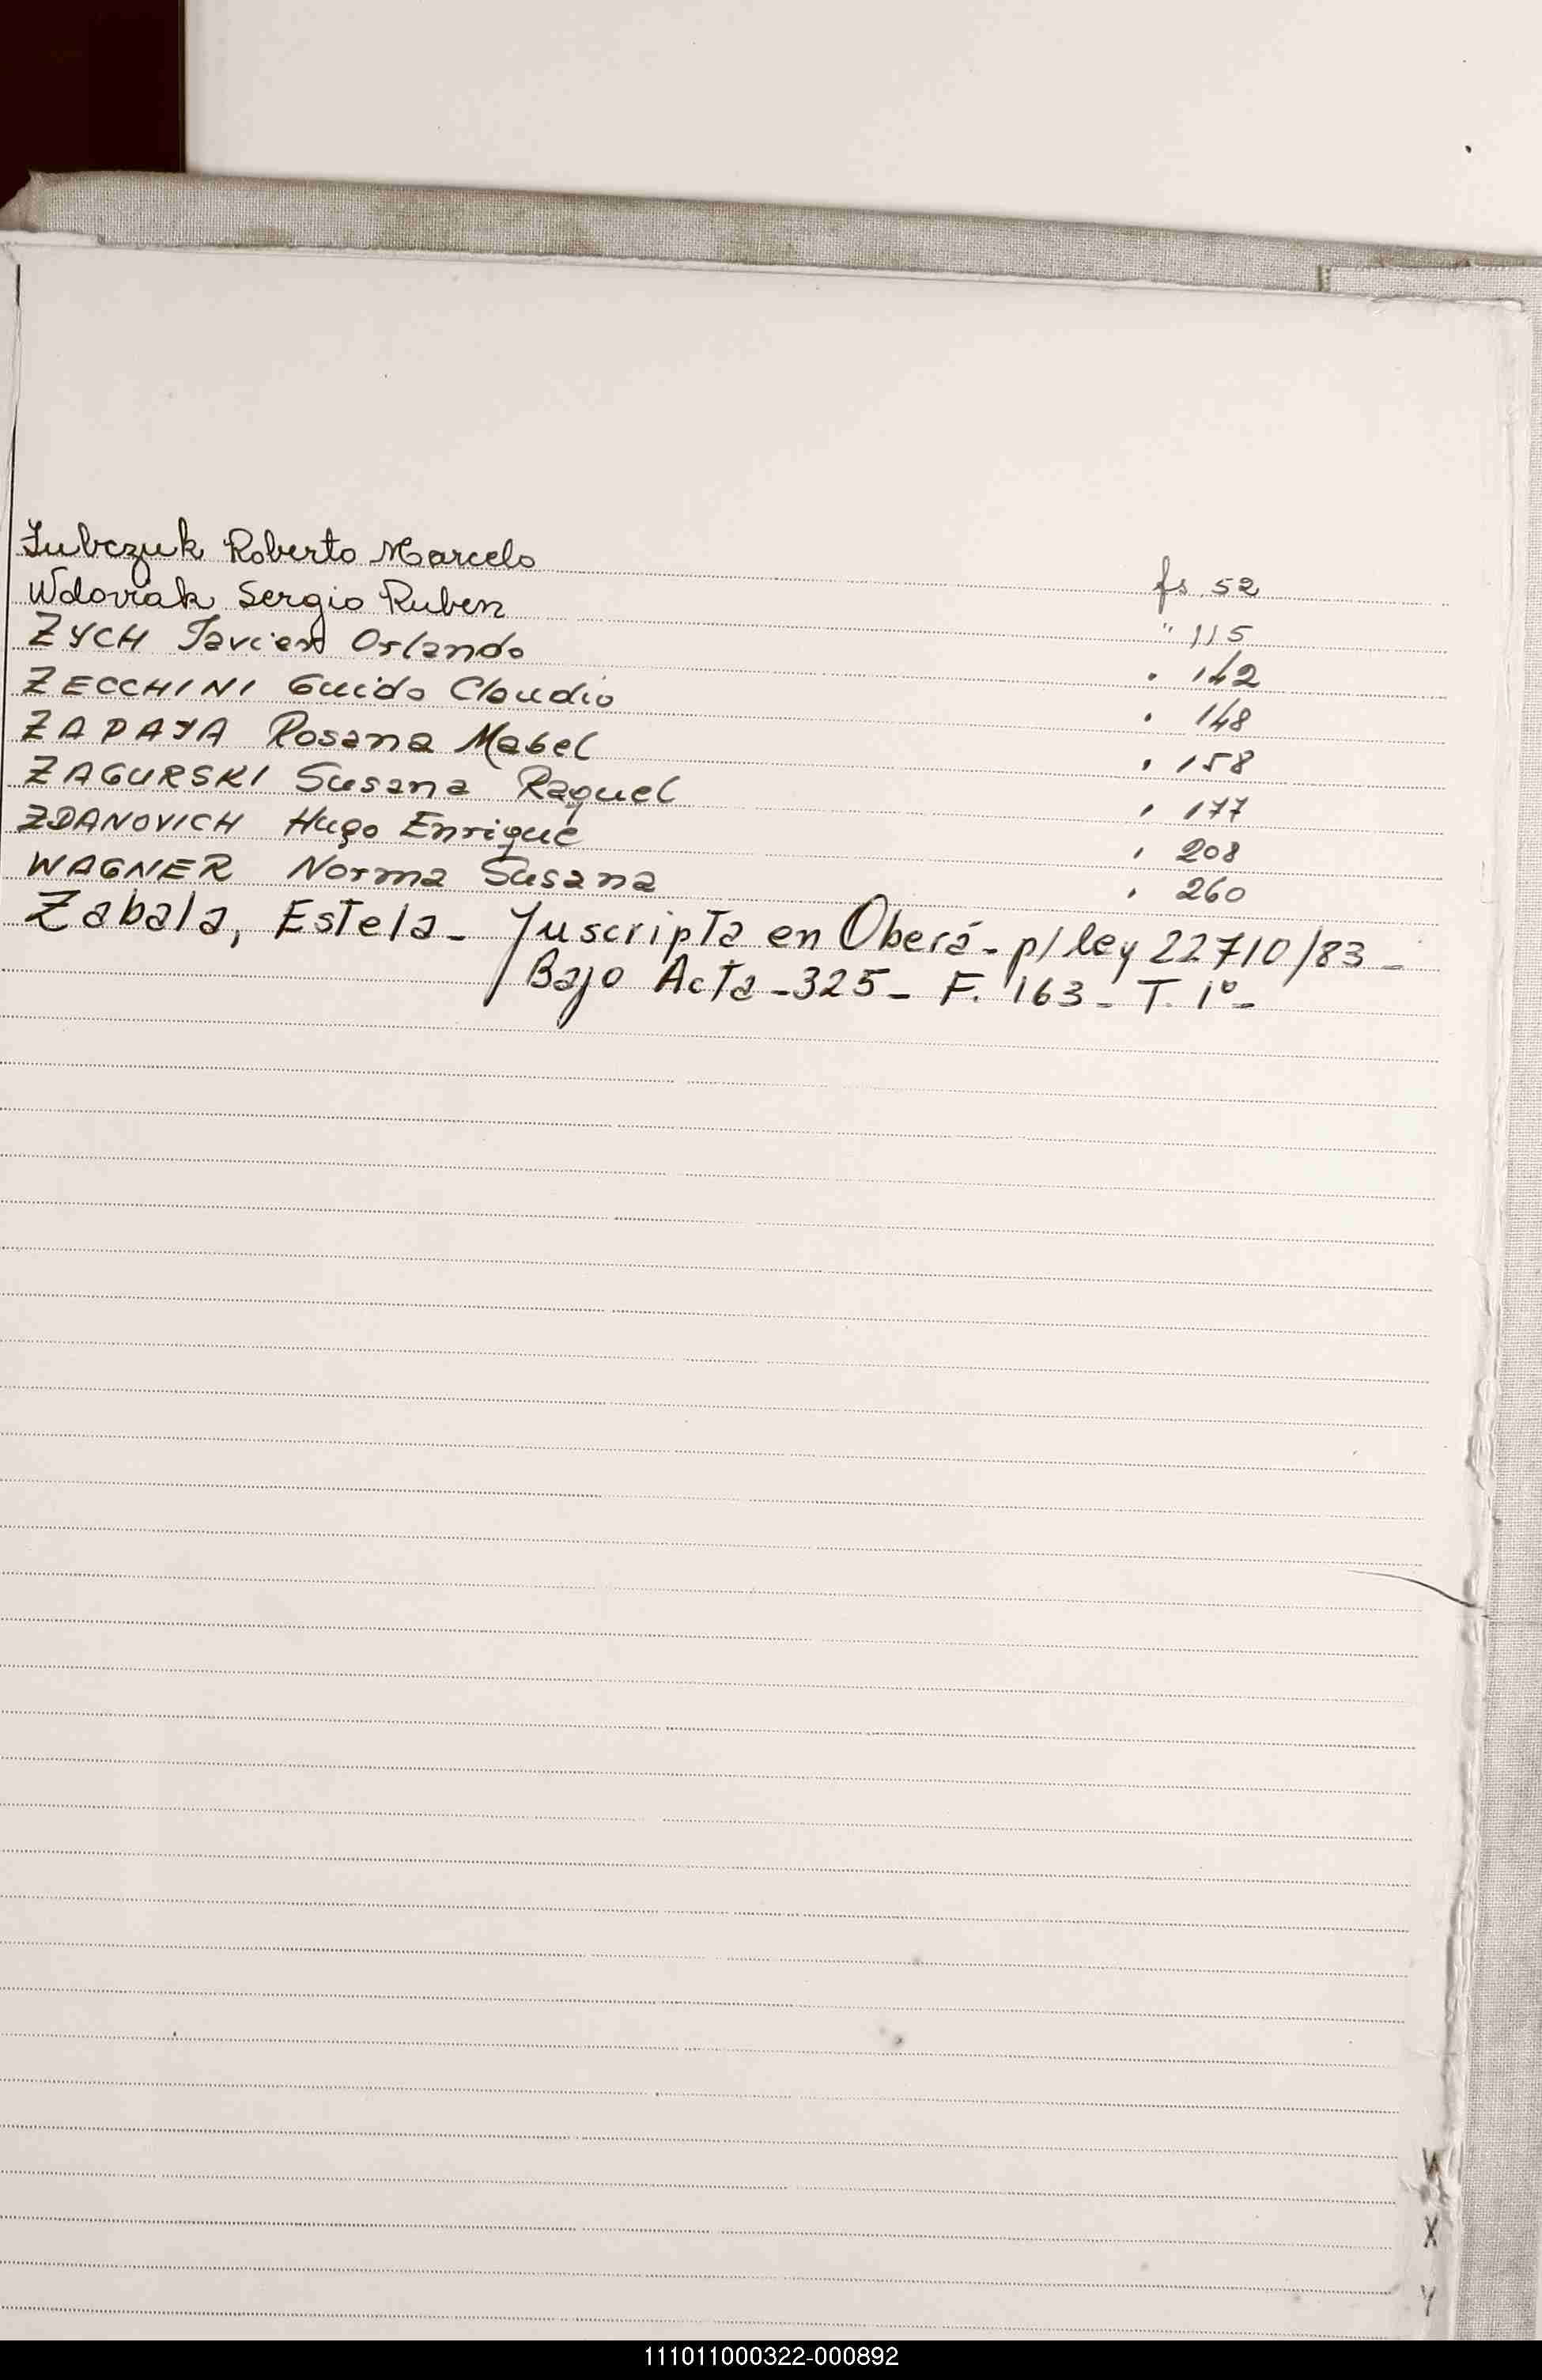 Zubczuk Roberto Marcelo fs. 52
Wdoviak Sergio Ruben " 115
ZYCH Javier Orlando " 142
ZECCHINI Guido Claudio " 148
ZAPAYA Rosana Mabel " 158
ZAGURSKI Susana Raquel " 177
ZDANOVICH Hugo Enrique " 208
WAGNER Norma Susana " 260
Zabala, Estela - Inscripta en Oberá - p/ ley 22710/83 -
Bajo Acta - 325 - F. 163 - T. 1º -
W
X
Y
111011000322-000892